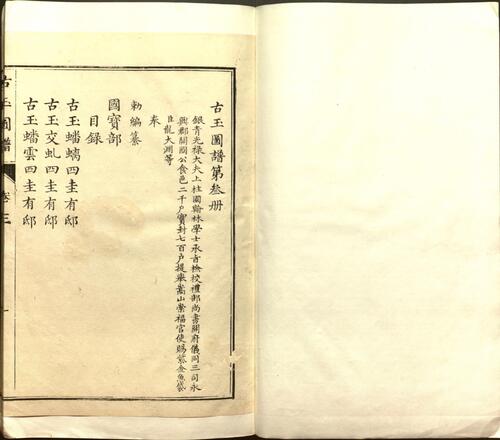 古玉圖譜第叁册
銀青光祿大夫上柱國翰林學士承旨檢校禮部尚書開府儀同三司永
興郡開國公食邑二千戶實封七百戶提舉嵩山崇福宮使賜紫金魚袋
臣龍大淵等
奉
勅編纂
國寶部
目錄
古玉蟠螭四圭有邸
古玉交虬四圭有邸
古玉蟠雲四圭有邸
古玉圖譜
卷三
一